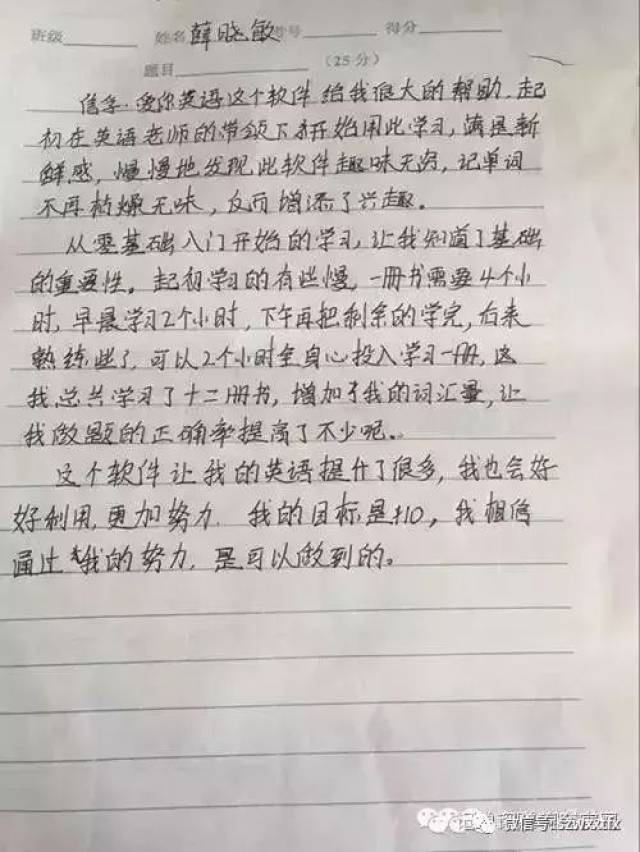 班级 姓名 薛晓敏 考号 得分
题目 (25分)
信学·爱你英语这个软件给我很大的帮助.起
初在英语老师的带领下才开始用此学习,满是新
鲜感,慢慢地发现此软件趣味无穷,记单词
不再枯燥无味,反而增添了兴趣。
从零基础入门开始的学习,让我知道了基础
的重要性。起初学习的有些慢,一册书需要4个小
时,早晨学习2个小时,下午再把剩余的学完,后来
熟练些了,可以2个小时全身心投入学习一册,这
我总共学习了十二册书,增加了我的词汇量,让
我做题的正确率提高了不少呢。
这个软件让我的英语提升了很多,我也会好
好利用,更加努力.我的目标是110,我相信
通过我的努力.是可以做到的。
微信号